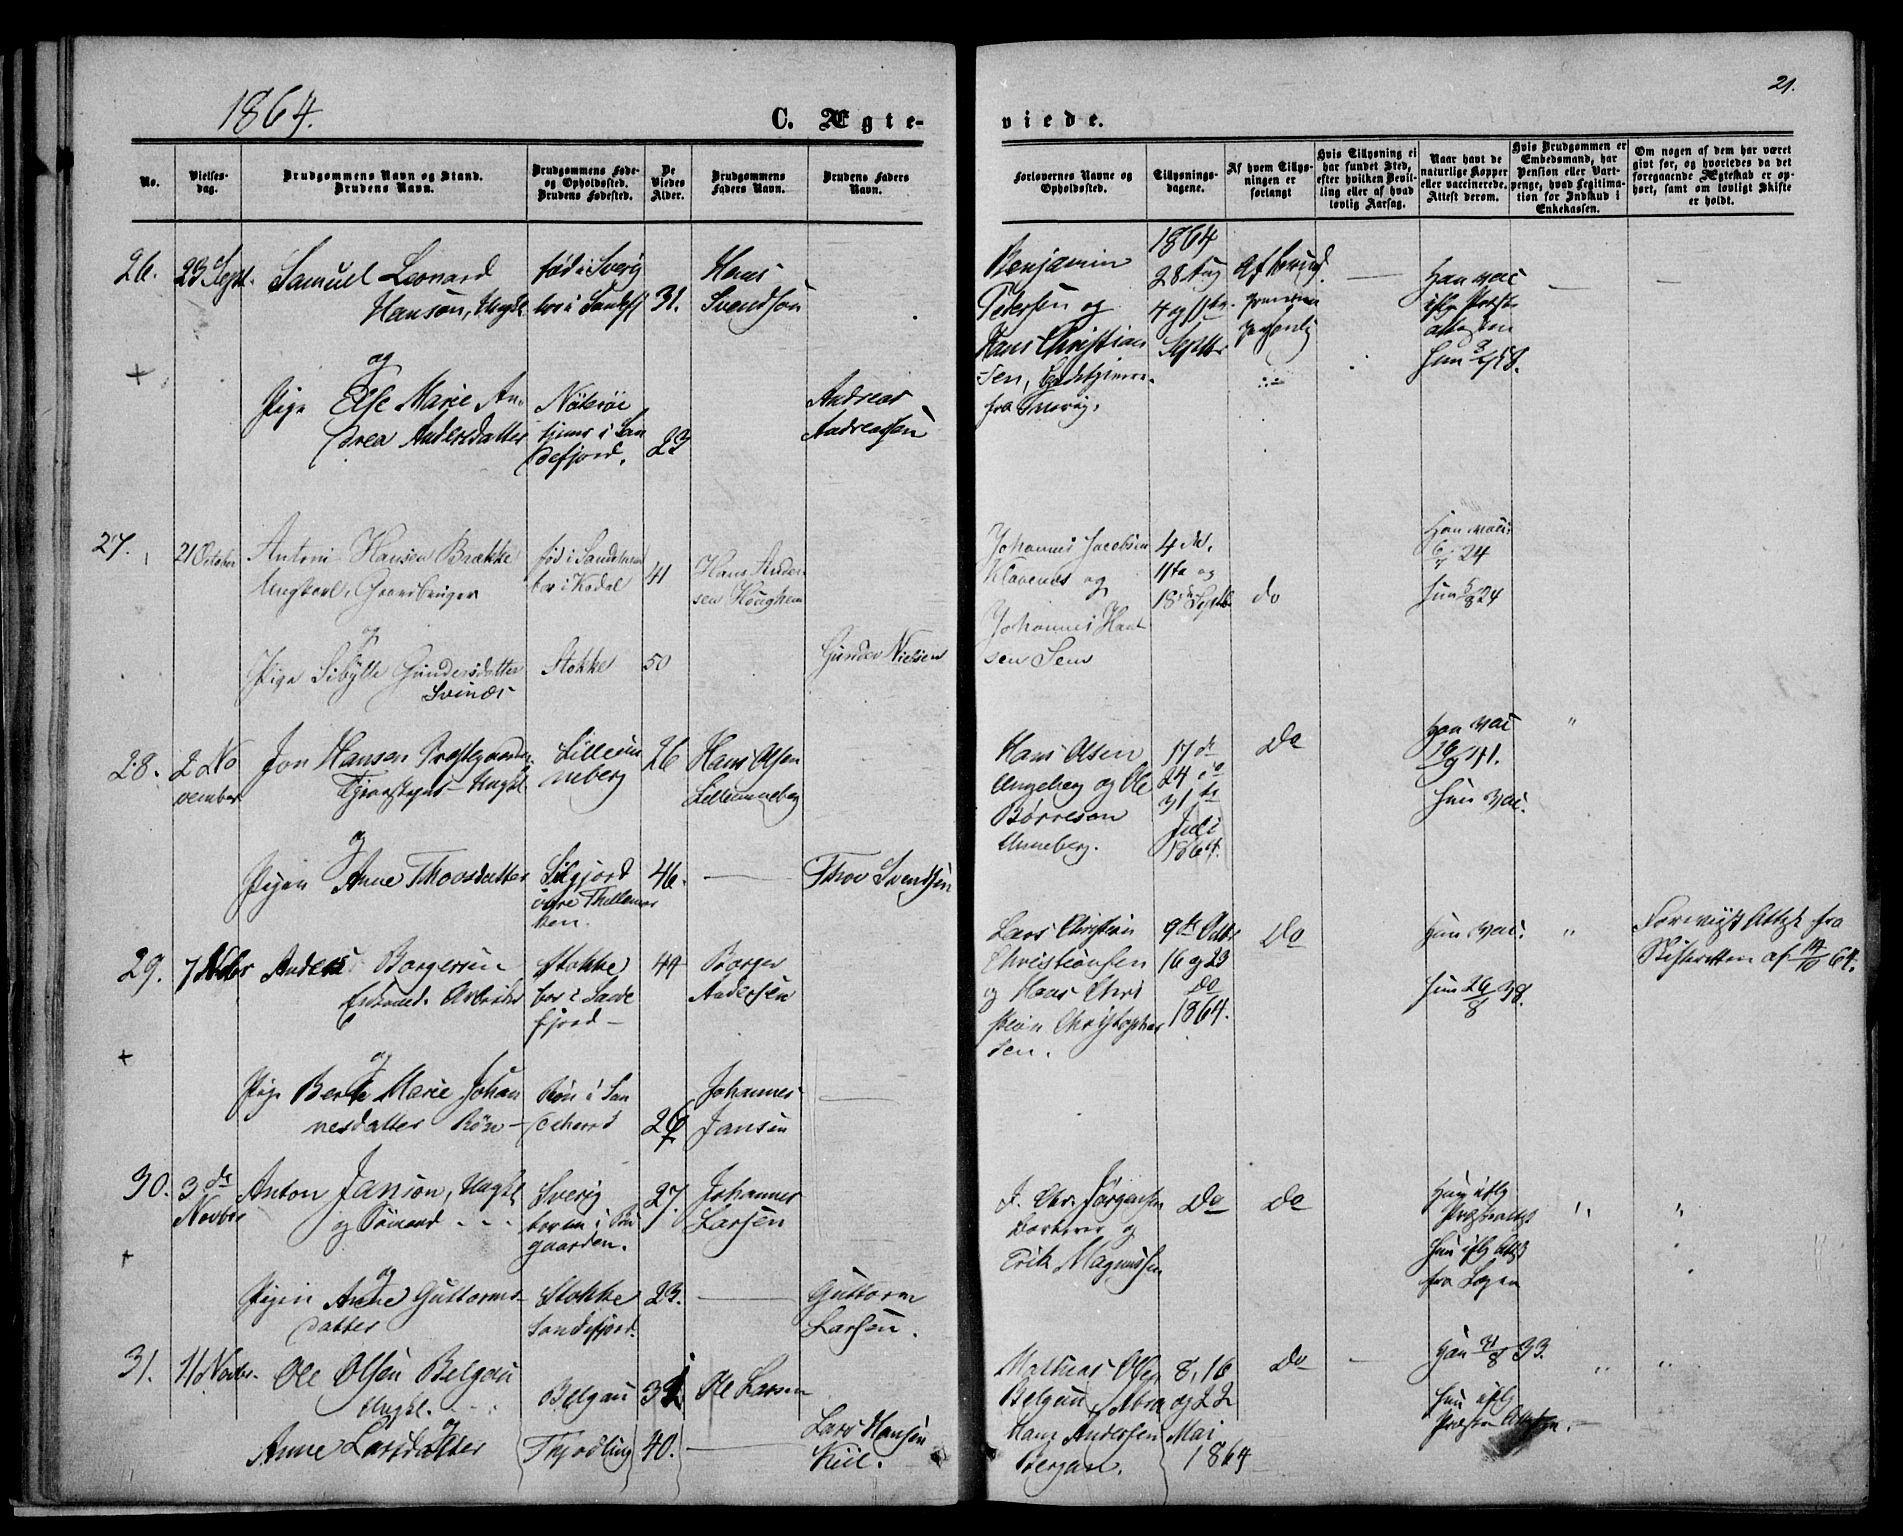 1864.
C. Ægte-
viede.
21.
No.
Vielses-
dag.
Brudgommens Navn og Stand.
Brudens Navn.
Brudgommens Føde-
og Opholdssted.
Brudens Fødested.
De
Viedes
Alder.
Brudgommens
Faders Navn.
Brudens Faders
Navn.
Forlovernes Navne og
Opholdssted.
Tillysnings-
dagene.
Af hvem Tillys-
ningen er
forlangt
Hvis Tillysning ei
har fundet Sted,
efter hvilken Bevil-
ling eller af hvad
lovlig Aarsag.
Naar havt de
naturlige Kopper
eller vaccinerede.
Attest derom.
Hvis Brudgommen er
Embedsmand, har
Pension eller Vart-
penge, hvad Legitima-
tion for Indskud i
Enkekassen.
Om nogen af dem har været
givt før, og hvorledes da det
foregaaende Ægteskab er op-
hørt, samt om lovligt Skifte
er holdt.
26.
23 Sept.
Samuel Leonard
Hanson, Ungkl
og
Pige Else Marie An-
drea Andersdatter
fød i Sverig
bor i Sandefj
Nøterøe
tjener i San
defjord.
31.
23
Hans
Svendson
Andreas
Andreassen
Benjamin
Pedersen og
Hans Christian
sen,
fra Sverig.
1864
28 Aug
4 og 11te
Septbr
Han vac
Hun 58.
27.
21 October
Antoni Hansen Brække
Ungkarl, Gaardbruger
og
Pige Sibylle Gundersdatter
Svinæs
fød i Sandeherred
bor i Kodal
Stokke
41
50
Hans Ander-
sen Haughem
Gunder Nielsen
Johannes Jacobsen
Klavenæs og
Johannes Han
sen Sem
4 de,
11te og
18de Septb.
do
Han vac.
6/7 24
Hun 5/8 24
28.
2 No
vember
Jon Hansen Præstegaarden
Ungkl
og
Pigen Anne Thovsdatter
Lilleun
neberg
Siljord
øvre Thellemar
ken.
26
46.
Hans Olsen
Lilleunneberg
Thov Svendsen
Hans Olsen
Ungeberg og Ole
Børreson
Unneberg.
17 de
24 de
31 te
Juli
1864.
Do
Han vac
41.
Hun vac.
29.
7 Novbr
Anders Borgersen
Enkemd. Arbeider
og
Pige Berte Marie Johan
nesdatter Røn
Stokke
bor i Sande
fjord
Røn i San
deherred
44
26
Borger
Andersen
Johannes
Jansen
Lars Christian
Christiansen
og Hans Chri
stian Christopher
sen.
9de Octbr
16 og 23
Do
1864.
Do
Han vac.
Hun 26/8 38.
Foreviist Attest fra
Skifteretten af 14/10 64.
30.
3 de
Novbr
Anton Janson, Ungkl
og Sømand
og
Pigen Anne Guttorms
datter
Sverig
gaarden.
Stokke
Sandefjord.
27.
23.
Johannes
Larsen
Guttorm
Larsen.
J. Chr. Jørgensen
og
Erik Magnussen
Do
Do
Han iflg
Præsteattest
Hun iflg Attest
fra Lægen
31.
11 Novbr.
Ole Olsen Belgau
Ungkl.
og
Anne Larsdatter
Belgau
Thjodling
40.
Ole Larsen
Lars Hansen
Kiil.
Mathias Olsen
Belgau
Hans Andersen
Bergan.
8, 16
og 22
Mai
1864
Do
Han 31/8 33.
Hun iflg